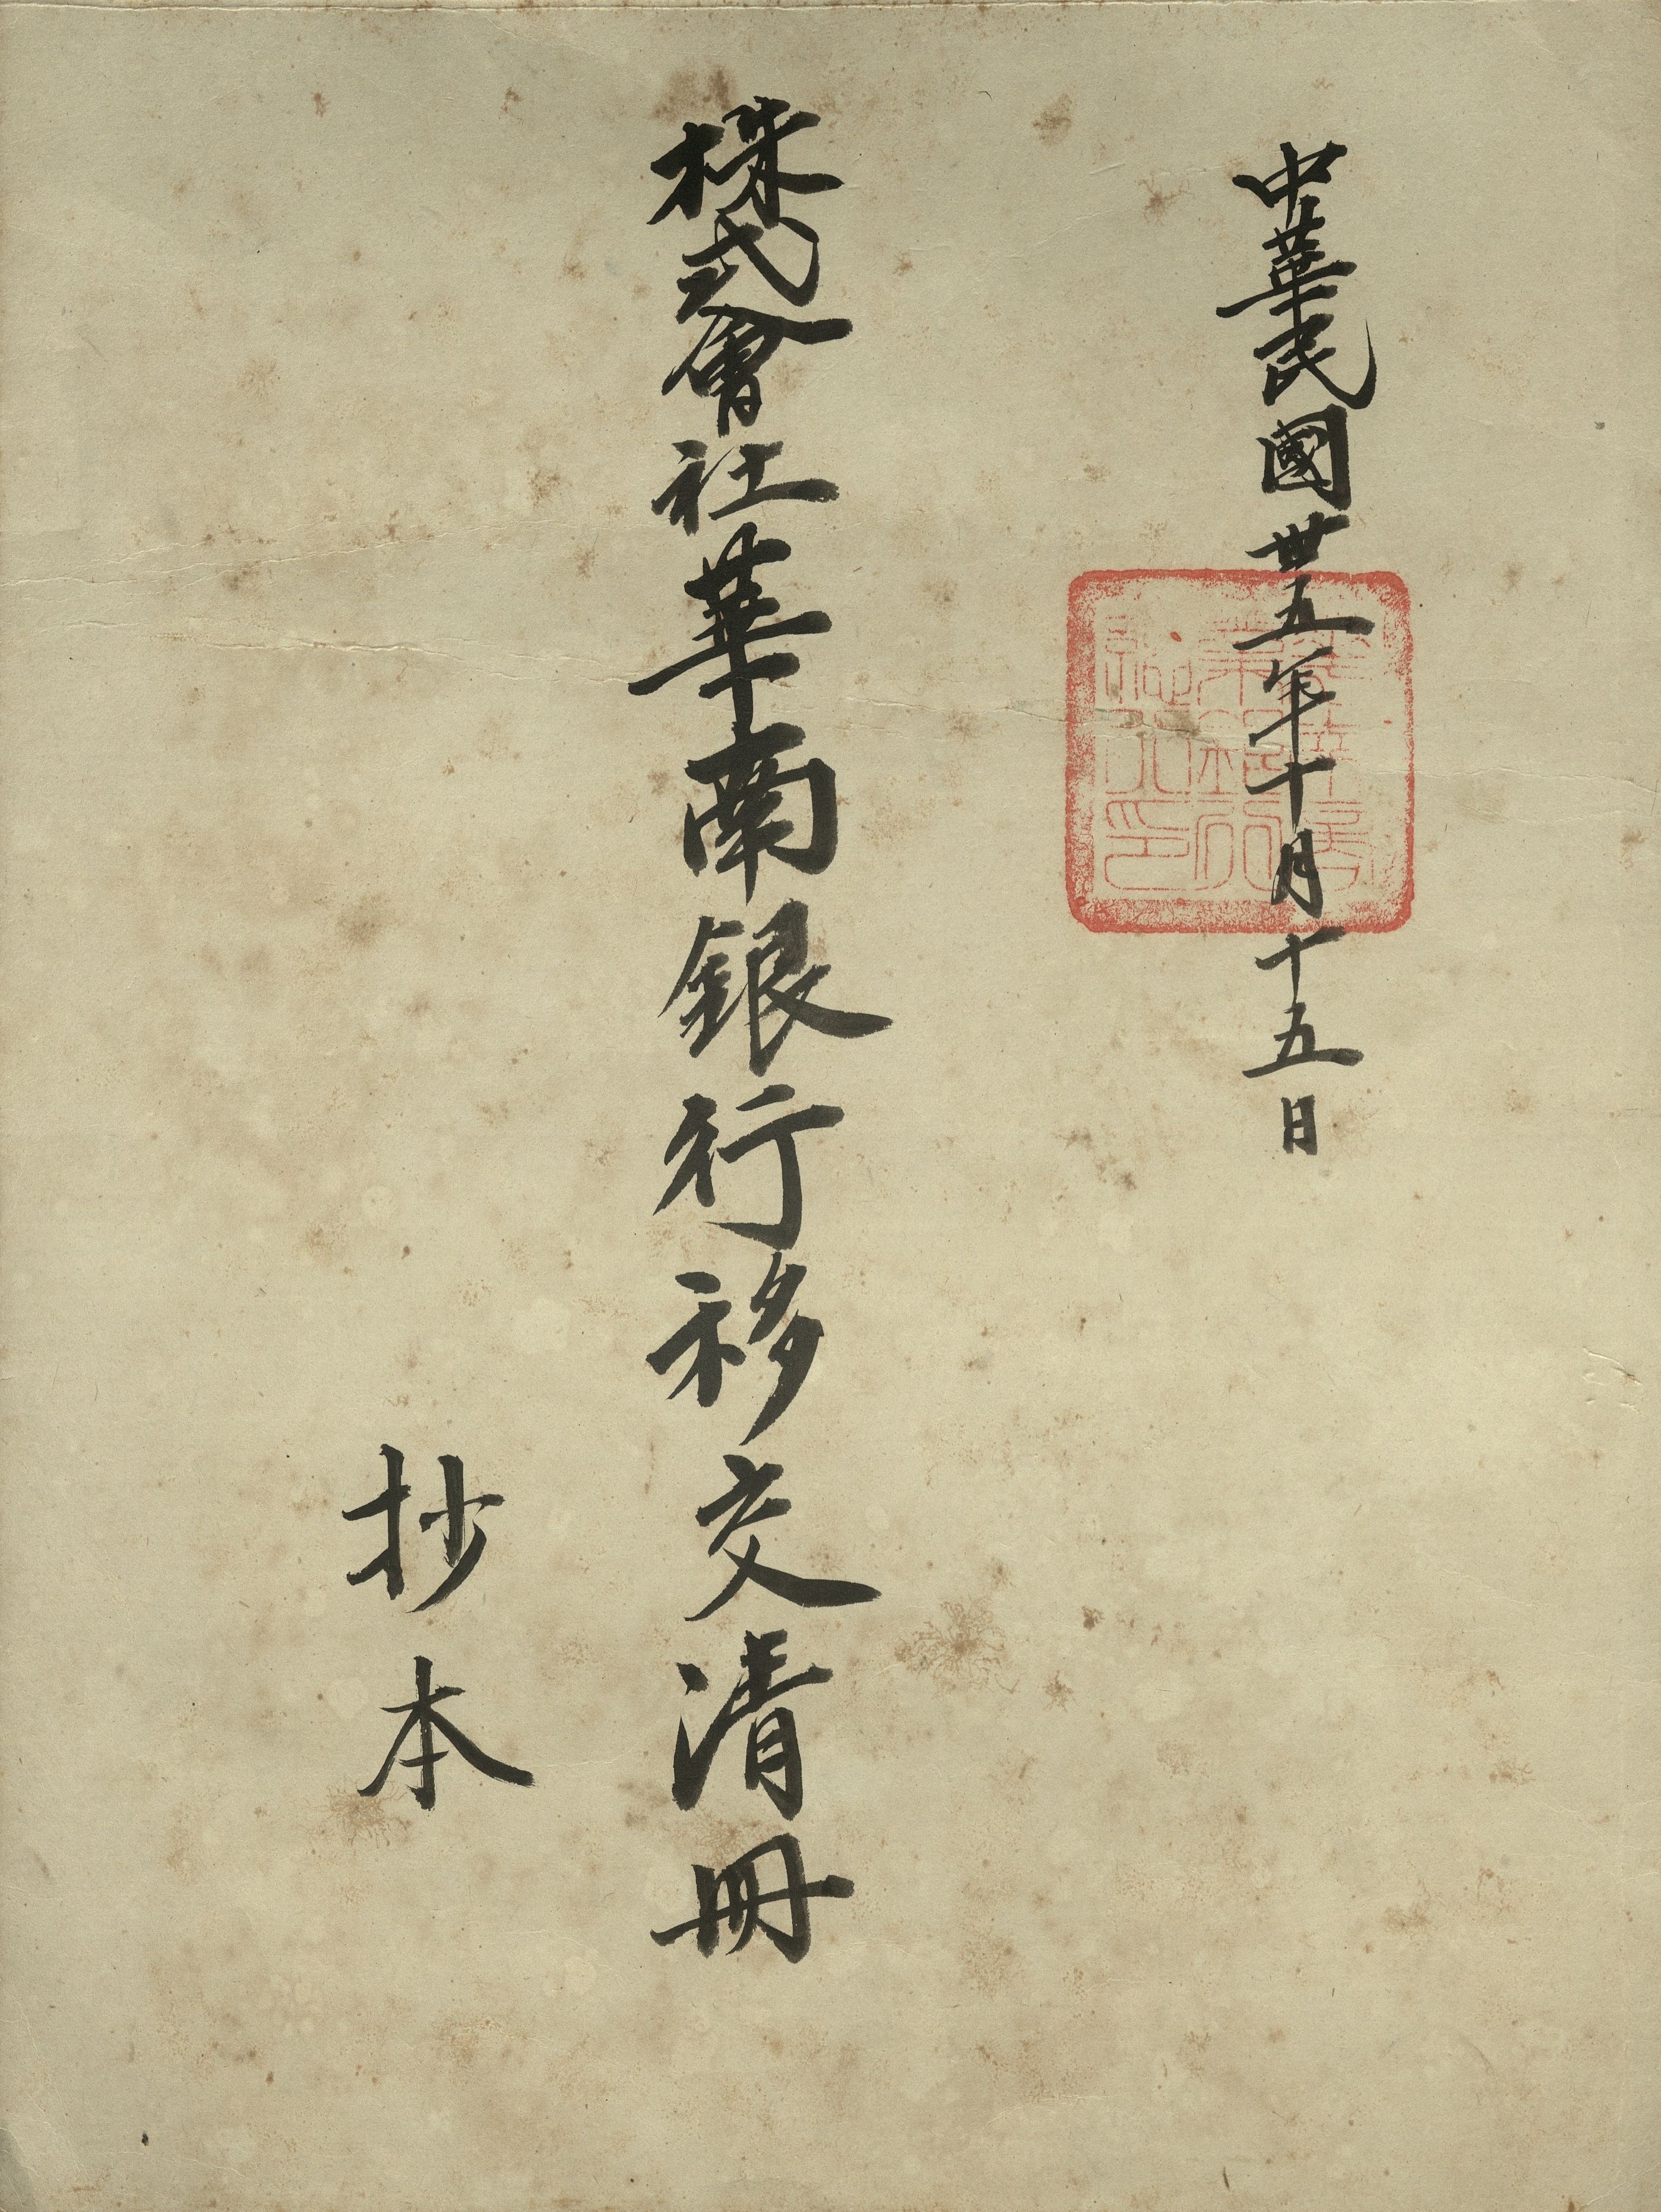 中華民國卅五年十月十五日
株式會社華南銀行移交清冊
抄本